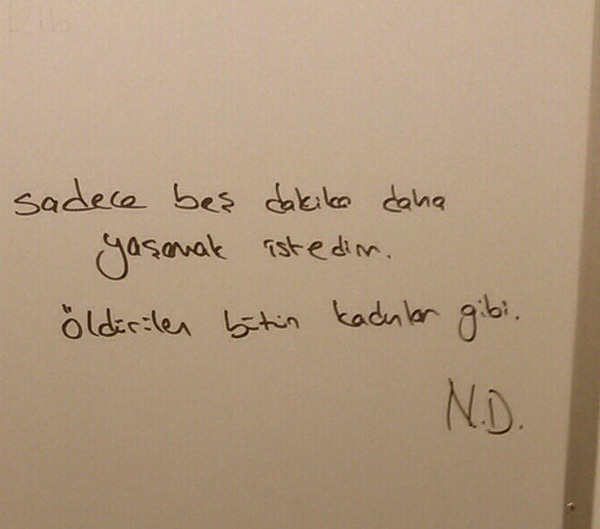 sadece beş dakika daha
yaşamak istedim.
öldürülen bütün kadınlar gibi.
N.D.